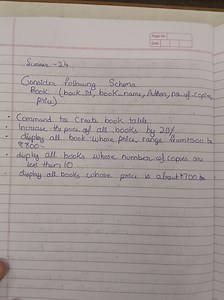 Page No.
Date
Summer - 24
Consider following Schema
Book (book_id, book_name, Author, no. of copies,
price)
• Command to Create book table
• Increase the price of all books by 20%
• display all book whose price range from ₹500 to
₹800 -
• display all books whose number of copies are
less than 10
• display all books whose price is about ₹700 to